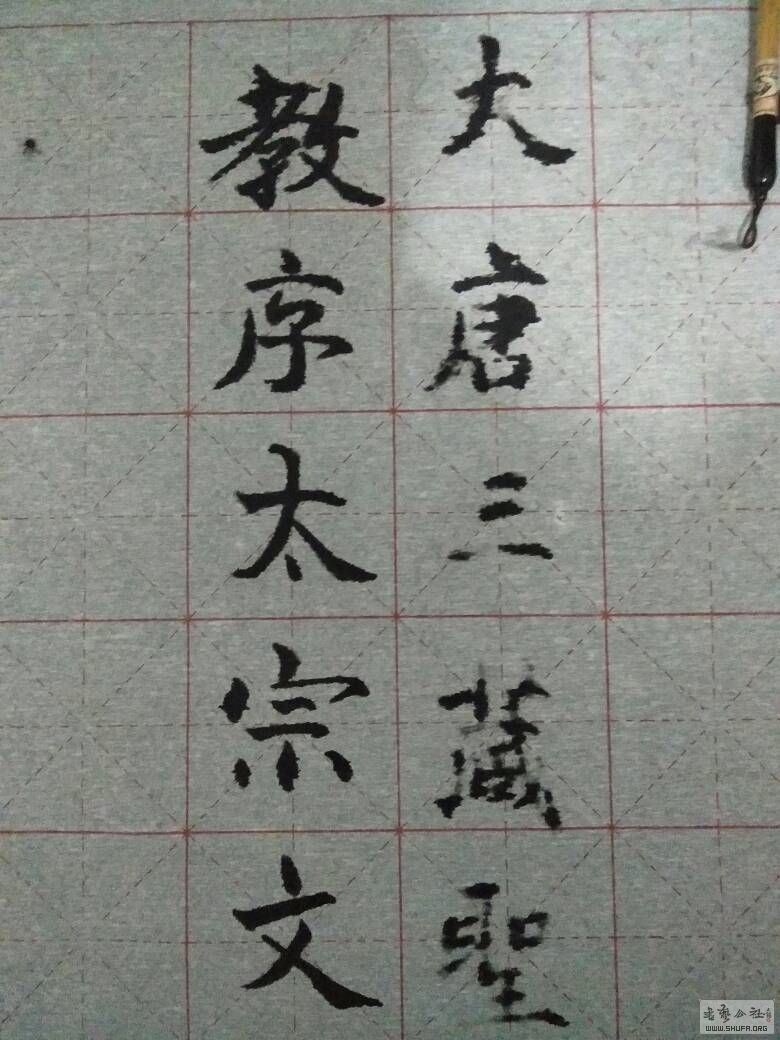 大唐三藏聖
教序太宗文
书艺公社
WWW.SHUFA.ORG